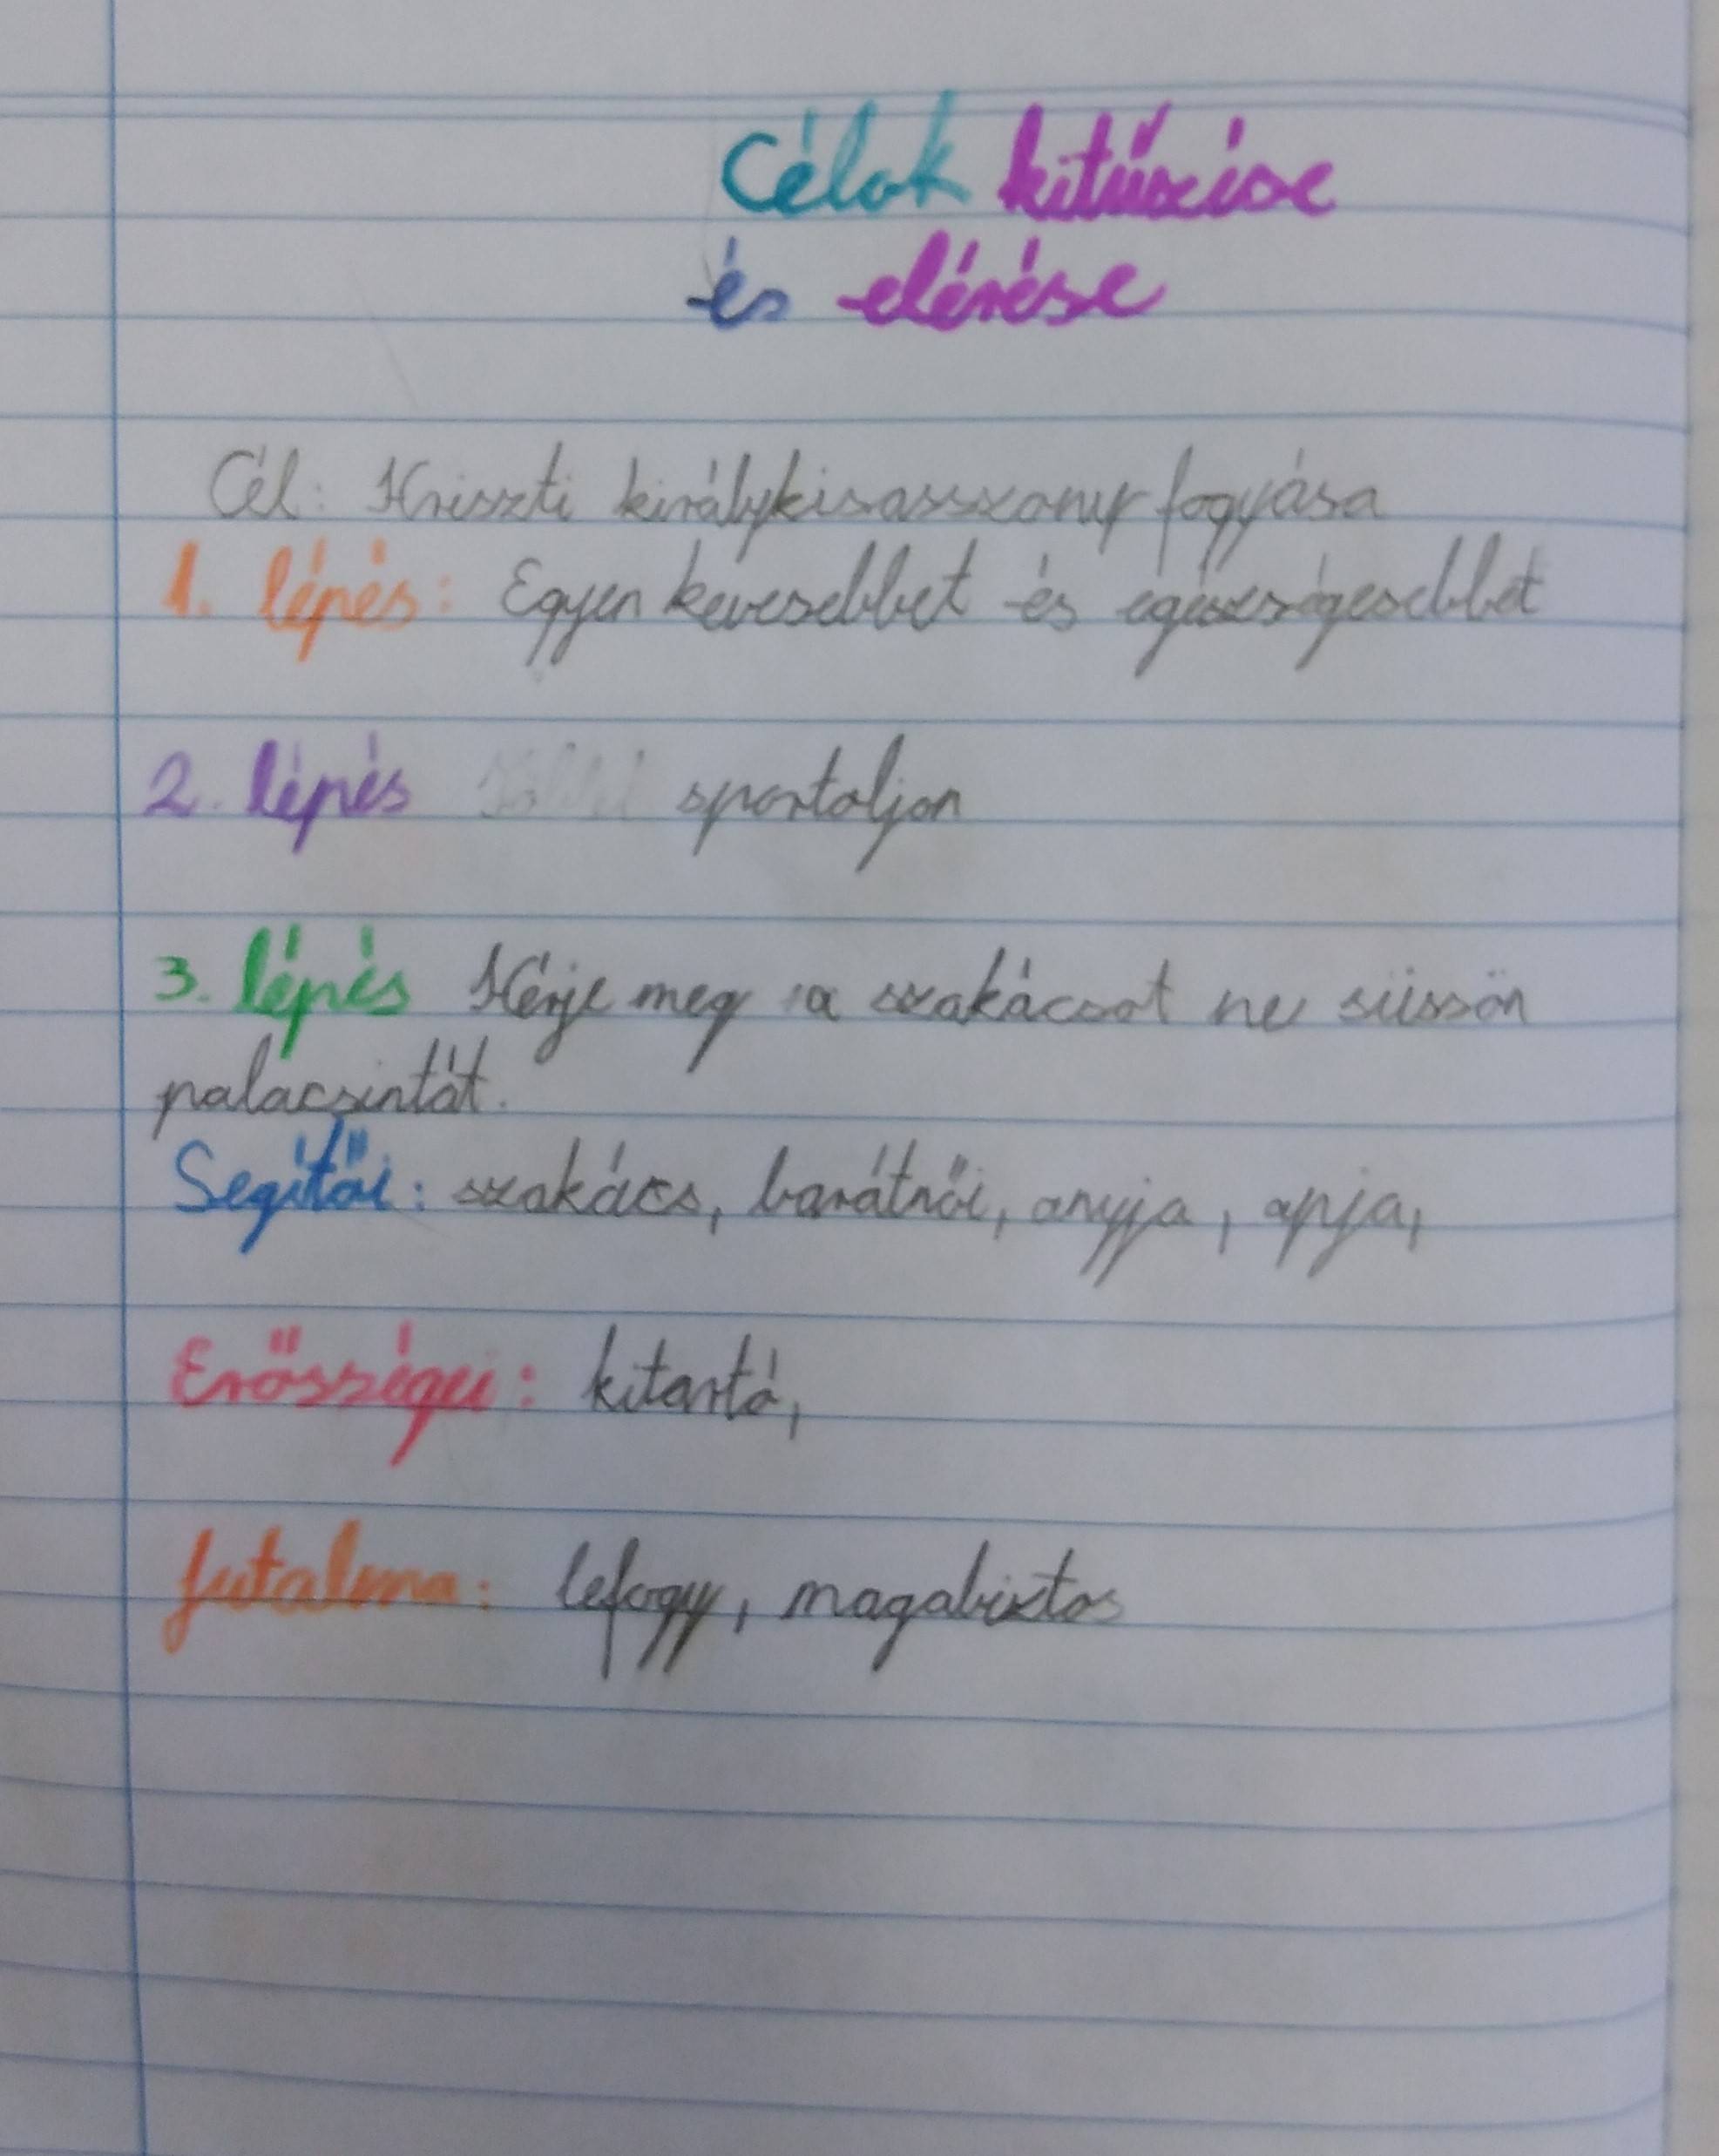 Célok kitűzése
és elérése
Cél: Kriszti királykisasszony fogyása
1. lépés: Egyen kevesebbet és egészségesebbet
2. lépés sportoljon
3. lépés Kérje meg a szakácsot ne süssön
palacsintát.
Segítői: szakács, barátnői, anyja, apja,
Erősségei: kitartó,
Jutalma: lefogy, magabiztos